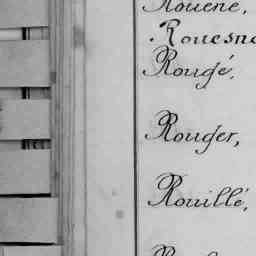 Rouene,
Rouesn
Rougé,
Rouger,
Rouillé,